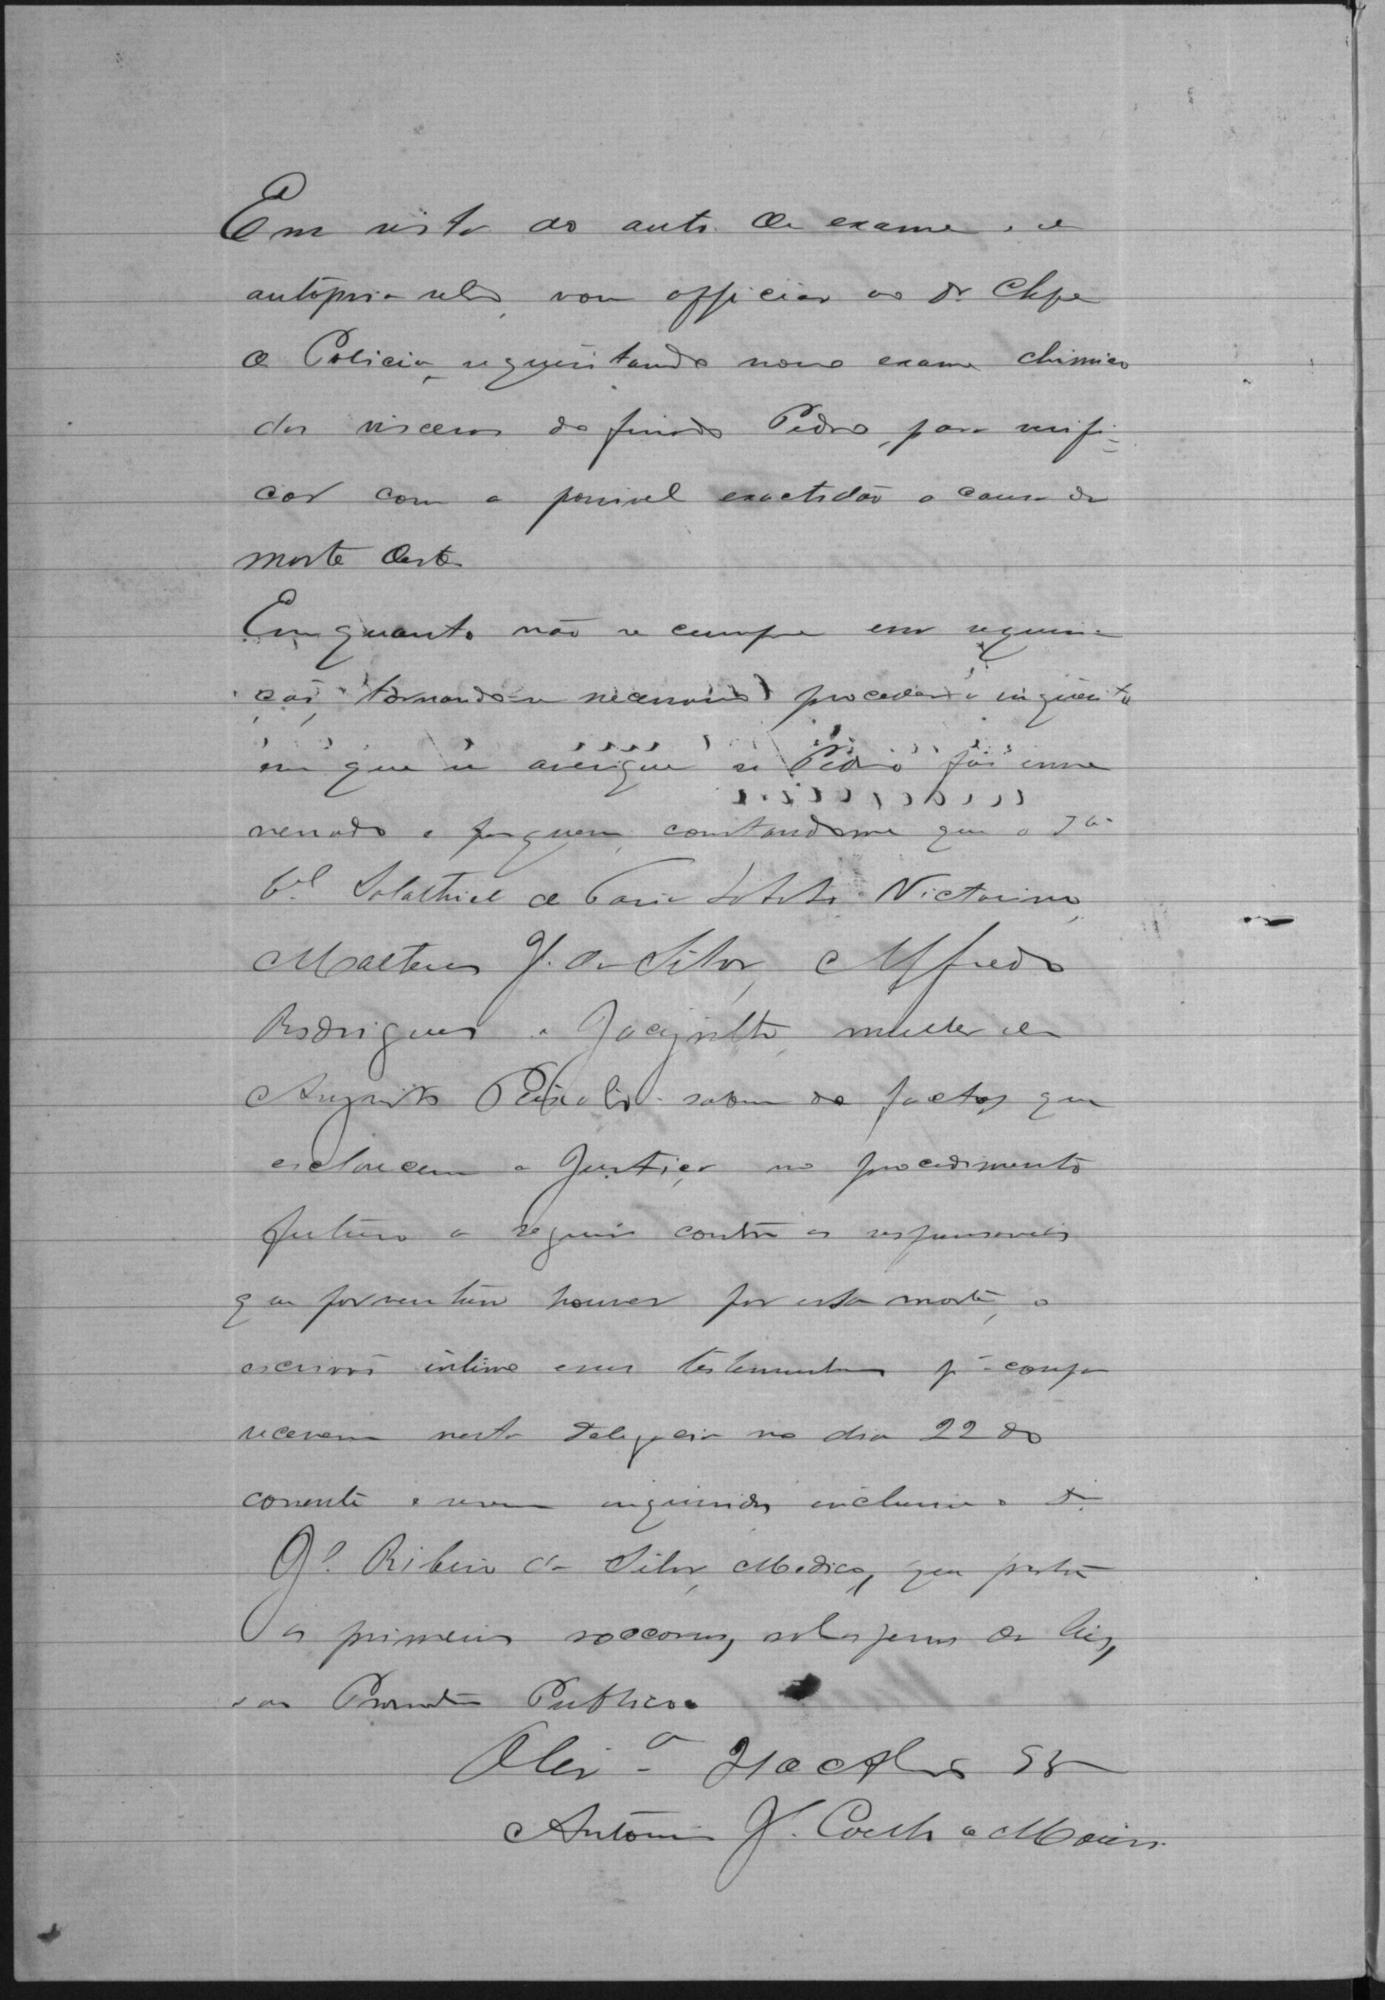 Em vista do auto de exame e de
autopsia retro, vou officiar ao Dr Chefe
de Policia, requisitando novo exame chimico
das visceras do finado Pedro, para verifi=
car com a possivel exactidão a causa da
morte deste.
Emquanto não se cumpre essa requisi-
ção, tornando-se necessario proceder a inquerito
em que se averigue se Pedro foi enve
nenado e por quem, constando-me que o
Bel Salathiel de Victorino,
Matheus J. da Silva, Alfredo
Rodrigues e Jacyntha, mulher de
Augusto sabem de factos que
esclarecem a Justiça no procedimento
futuro a seguir contra os responsaveis
que porventura houver por esta morte, o
escrivão intime essas testemunhas pa compa
recerem nesta Delegacia no dia 22 do
corrente e serem inqueridas inclusive o Dr
Ribeiro da Silva, Medico, que prestou
os primeiros soccorros, sob as penas da lei,
e ao Promotor Publico.
Abril
Antonio J. Coelho de